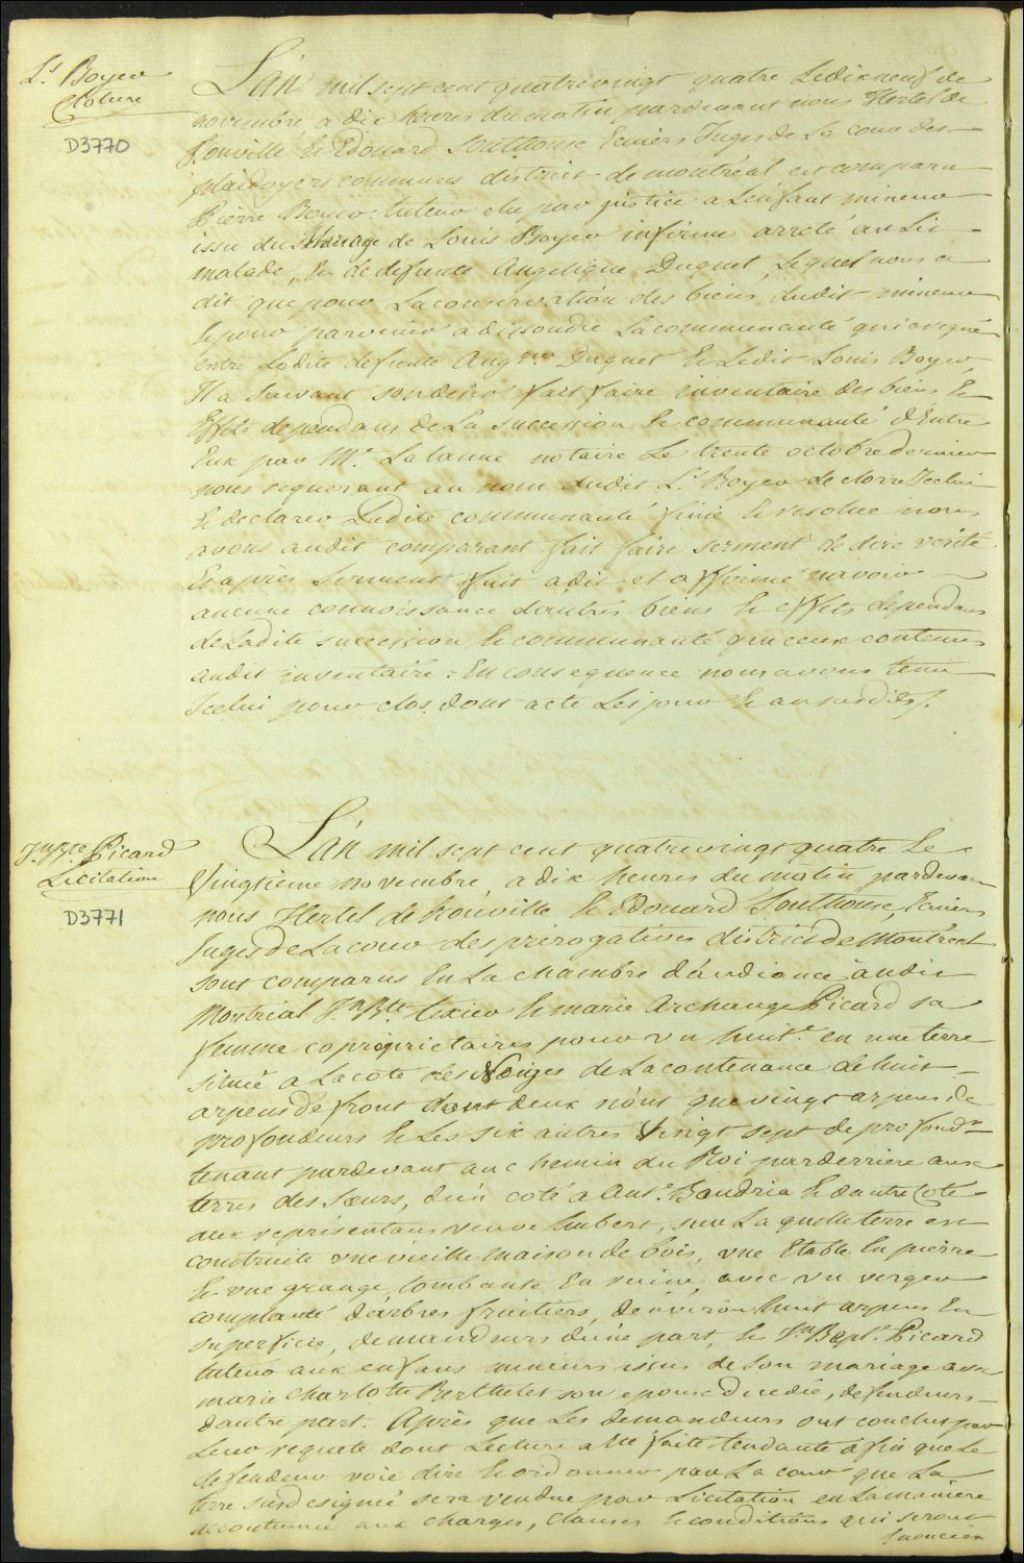 Ls Boyer
Cloture
D3770
L'an mil sept cent quatrevingt quatre Le dix neuf de
novembre a dix heures du matin pardevant nous Hertel de
Rouville & Edouard Southouse Ecuiers Juges de La cour des
plaidoyers communs district de montréal est comparu
Pierre Boyer tuteur elu par justice a L'enfant mineur
issu du Mariage de Louis Boyer infirme arreté au Lit
malade, & de defunte Angelique Duquet, Lequel nous a
dit que pour La conservation des biens dudit mineur
& pour parvenir a dissoudre La communauté qui a regné
entre Ladite defunte Angque Duquet & Ledit Louis Boyer,
Il a suivant son devoir fait faire inventaire des biens &
Effets dependans de La succession & communauté d'Entre
Eux par Mr Lalanne notaire Le trente octobre dernier
nous requerant au nom dudit Ls Boyer de clorre Icelui
& declarer Ladite communauté finie & resolue nous
avons audit comparant fait faire serment de dire verité
Et après serment fait a dit et affirmé n'avoir
aucune connoissance d'autres biens & effets dependans
de Ladite succession & communauté que ceux contenus
audit inventaire : En consequence nous avons tenu
Icelui pour clos. dont acte Les jour & an susdits.
Jn Bte Picard
Licitation
D3771
L'an mil sept cent quatrevingt quatre Le
Vingtieme novembre, a dix heures du matin pardevan
nous Hertel de Rouville & Edouard Southouse, Ecuiers
Juges de La cour des prerogatives district de Montreal
sont comparus En La chambre d'audiance audit
Montréal Jn Bte texier & marie Archange Picard sa
femme coproprietaires pour un huite en une terre
situee a La cote des Neiges de La contenance de huit
arpens de front dont deux n'ont que vingt arpens de
profondeurs & Les six autres Vingt sept de profondr
tenant pardevant au chemin du Roi parderriere aux
terres des sœurs, d'un coté a Ante Baudria & d'autre Coté
aux représentans veuve hubert, sur Laquelle terre est
construite une vieille maison de bois, une Etable En pierre
& une grange tombante En ruine avec un verger
complanté d'arbres fruitiers, d'environ huit arpens En
superficie, demandeurs d'une part, & Jn Bapte Picard
tuteur aux enfans mineurs issus de son mariage avec
marie Charlotte Berthelet son epouse decedée, defendeurs
d'autre part. Après que Les demandeurs ont conclus par
Leur requete dont Lecture a eté faite tendante a fin que Le
defendeur voie dire & ordonner par La cour que La
terre susdesignée sera vendue par Licitation en La maniere
accoutumée aux charges, clauses & conditions qui seront
Enoncées